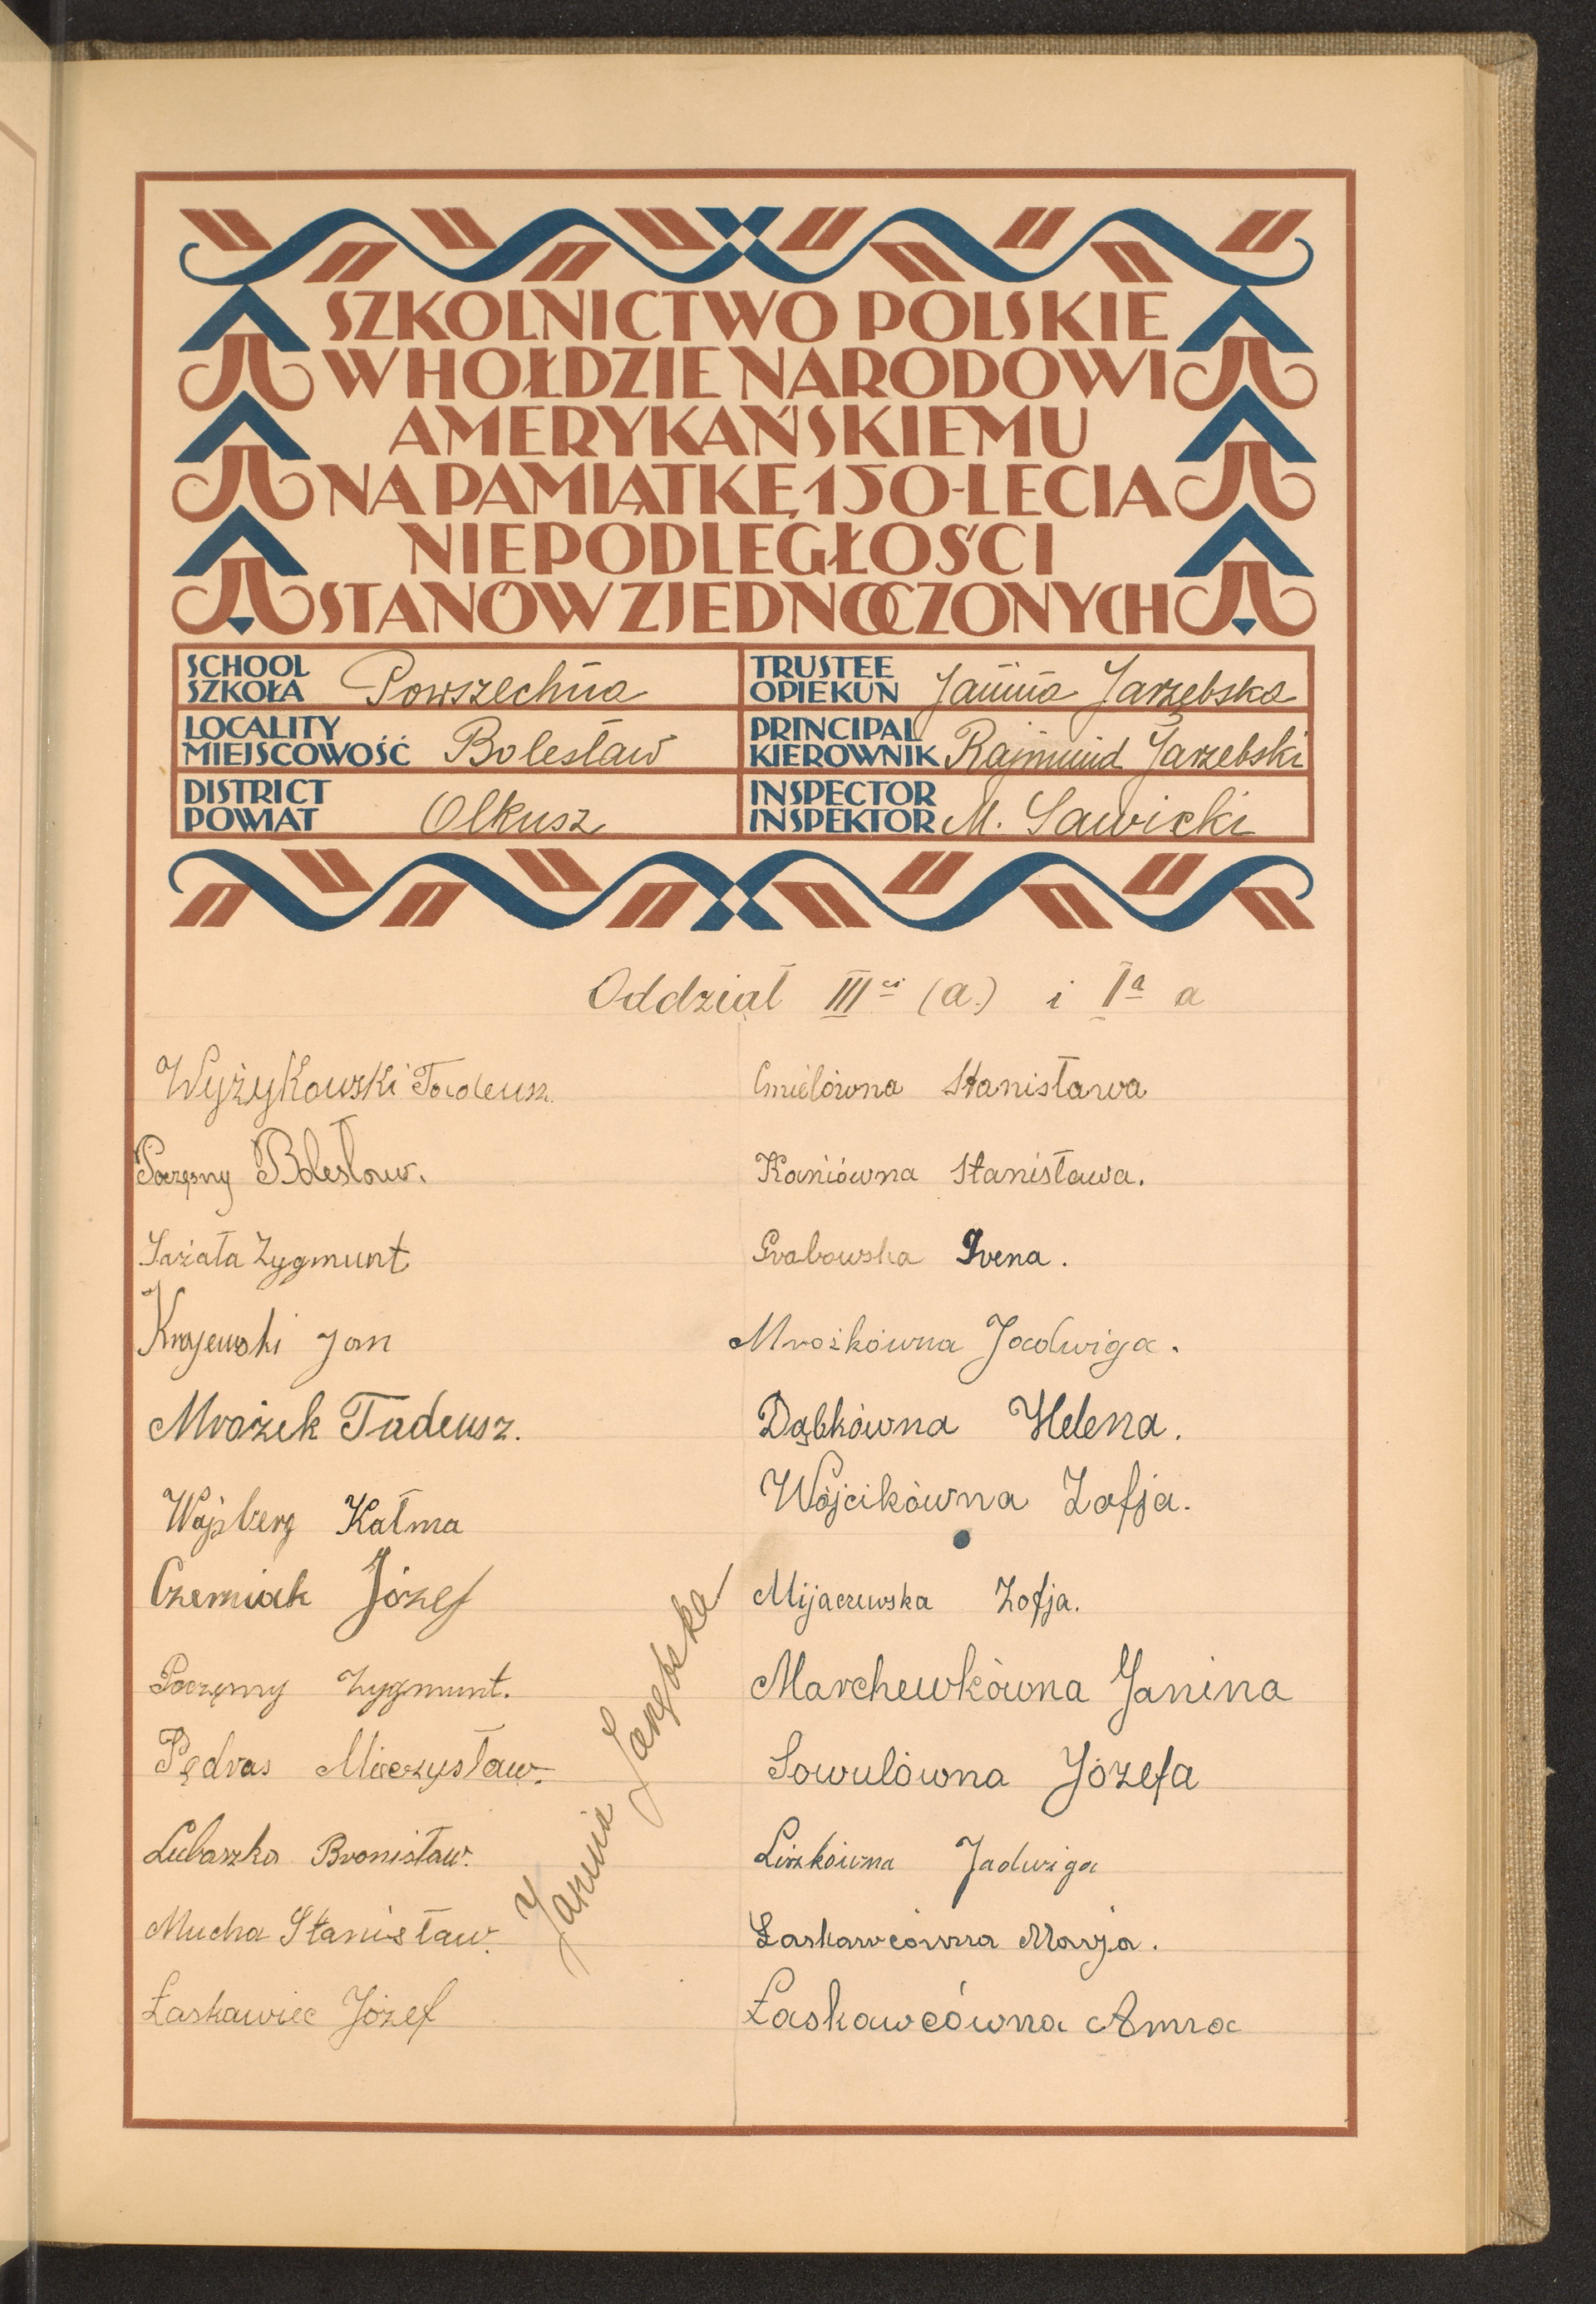 SZKOLNICTWO POLSKIE
W HOŁDZIE NARODOWI
AMERYKAŃSKIEMU
NA PAMIĄTKĘ 150-LECIA
NIEPODLEGŁOŚCI
STANÓW ZJEDNOCZONYCH
SCHOOL
SZKOŁA Powszechna
TRUSTEE
OPIEKUN Janina Jarzębska
LOCALITY
MIEJSCOWOŚĆ Bolesław
PRINCIPAL
KIEROWNIK Rajmund Jarzębski
DISTRICT
POWIAT Olkusz
INSPECTOR
INSPEKTOR M. Sawicki
Oddział III ci (a.) i I a a
Wyżykowski Tadeusz
Poczęsny Bolesław.
Zygmunt
Krajewski Jan
Mrożek Tadeusz.
Wajsberg Kałma
Czerniak Józef
Poczęsny Zygmunt.
Pędras Mieczysław.
Lubaszka Bronisław.
Mucha Stanisław.
Łaskawiec Józef
Janina Jarzębska
Cmielówna Stanisława
Kaniówna Stanisława.
Grabowska Irena.
Mrożkówna Jadwiga.
Dąbkówna Helena.
Wójcikówna Zofja.
Mijaczewska Zofja.
Marchewkówna Janina
Sowulówna Józefa
Liszkówna Jadwiga
Łaskawcówna Marja.
Łaskawcówna Anna